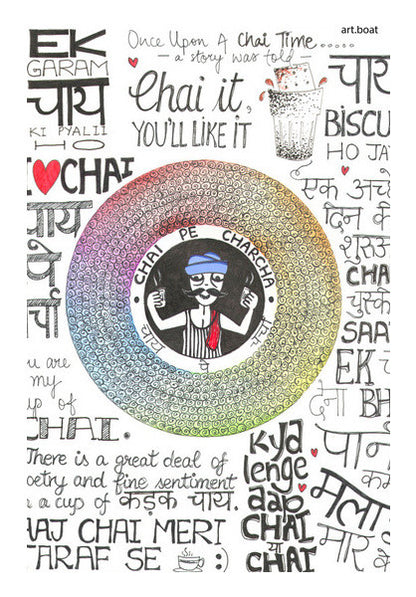 art.boat
EK
GARAM
चाय
KI PYALII
HO
Once Upon A Chai Time.....
— a story was told —
Chai it,
YOU'LL LIKE IT
चाय
BISCU
HO JA
I ♥ CHAI
चाय
पे
र्चा
CHAI PE CHARCHA
चाय पे चर्चा
एक अच्छे
दिन की
शुरुआ
CHA
चुस्के
SAA
EK च
देना BH
you are
my
up of
CHAI.
There is a great deal of
oetry and fine sentiment
n a cup of कड़क चाय.
AAJ CHAI MERI
TARAF SE :)
kya
lenge
aap
CHAI
या
CHAI
पान
कम
मला
मार के